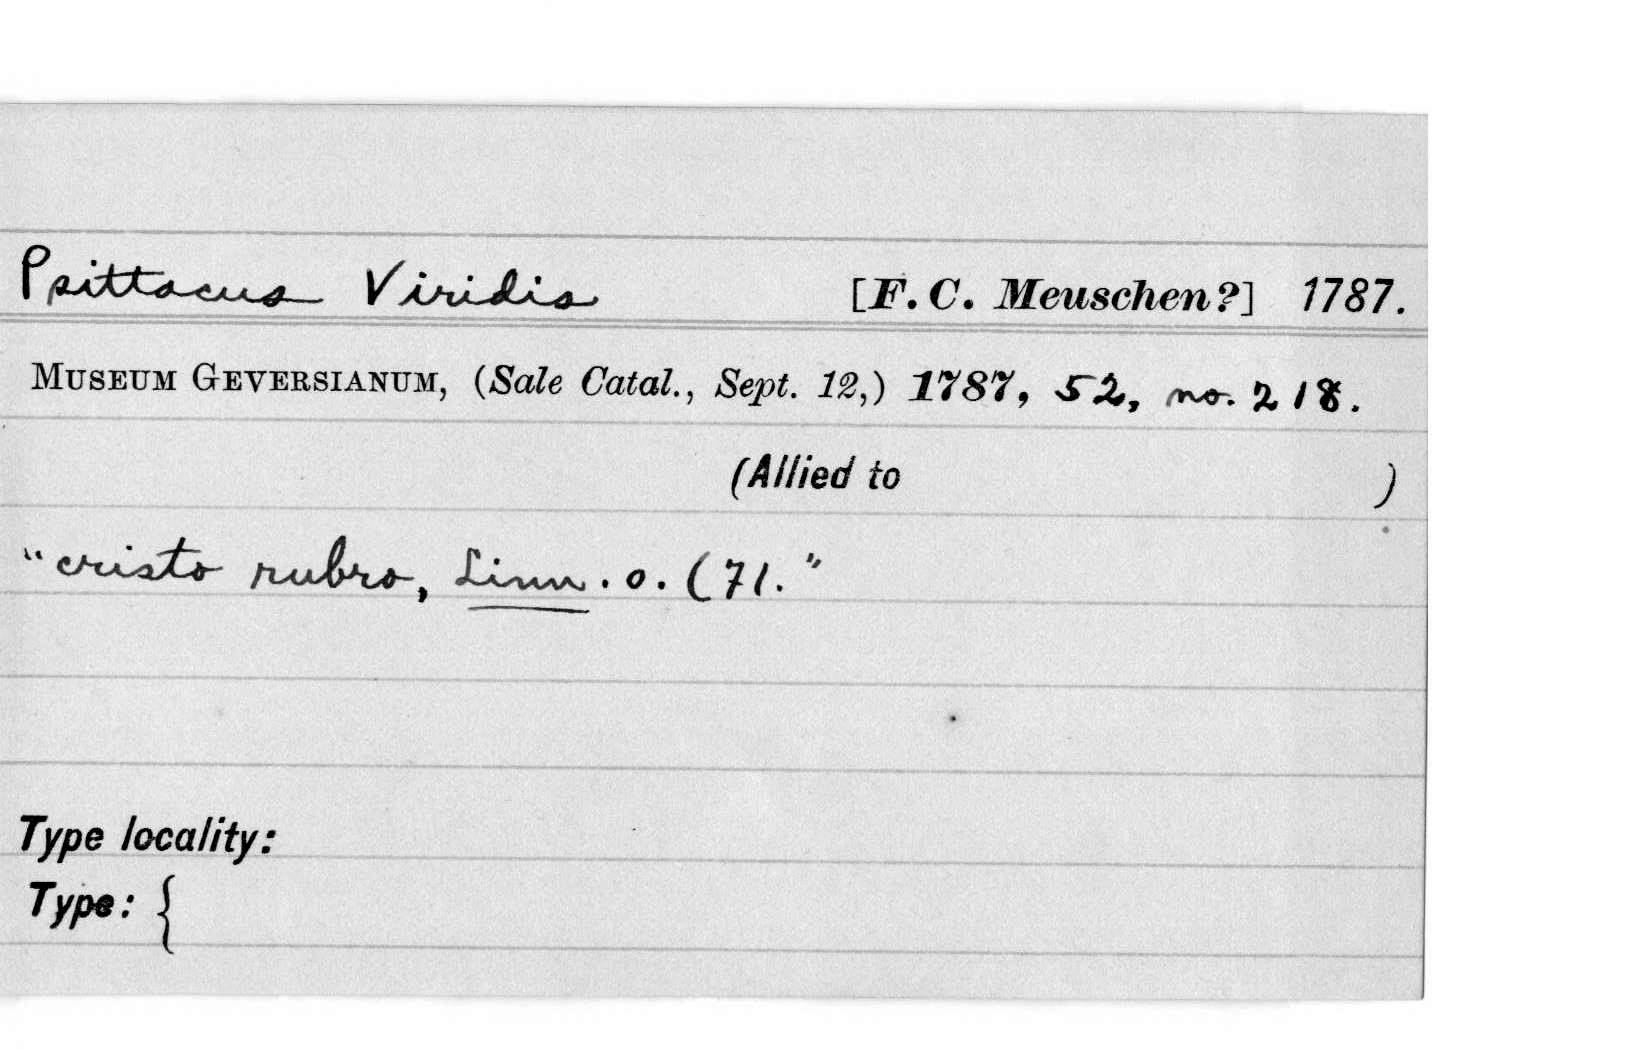 Psittacus Viridis [F. C. Meuschen?] 1787.
MUSEUM GEVERSIANUM, (Sale Catal., Sept. 12,) 1787, 52, no. 218.
(Allied to )
"cristo rubro, Linn. o. (71."
Type locality:
Type: {